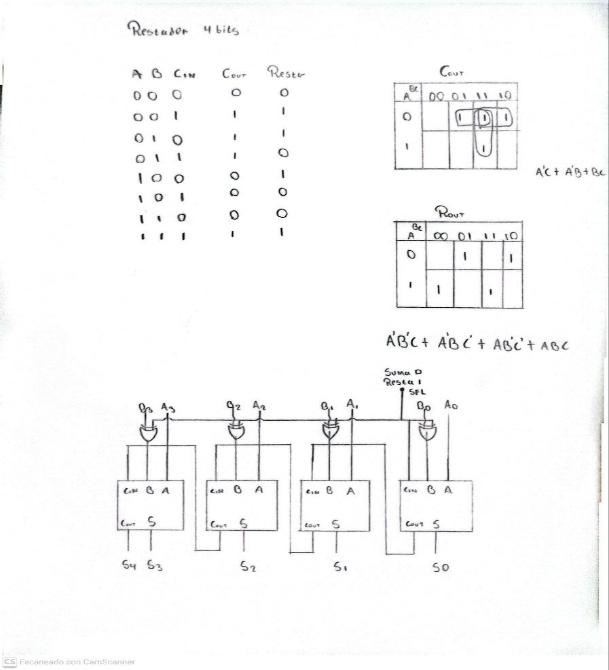 Restador 4 bits
A B CIN COUT Resta
0 0 0 0 0
0 0 1 1 1
0 1 0 1 1
0 1 1 1 0
1 0 0 0 1
1 0 1 0 0
1 1 0 0 0
1 1 1 1 1
COUT
BC
A 00 01 11 10
0 1 1 1
1 1
A'C + A'B + BC
ROUT
BC
A 00 01 11 10
0 1 1
1 1 1
A'B'C + A'BC' + AB'C' + ABC
Suma 0
Resta 1
SEL
B3 A3 B2 A2 B1 A1 B0 A0
CIN B A CIN B A CIN B A CIN B A
COUT S COUT S COUT S COUT S
S4 S3 S2 S1 S0
CS Escaneado con CamScanner